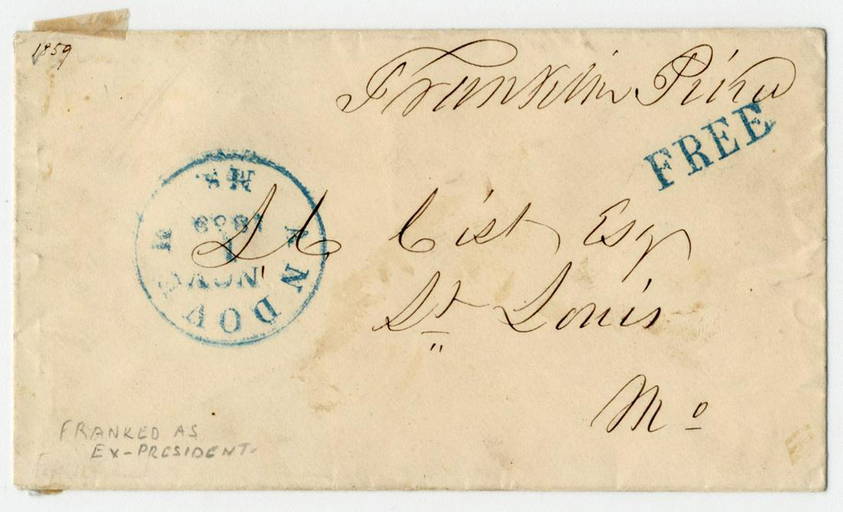 1859
Franklin Pierce
FREE
ANDOVER
Ms.
1859
1
NOV
L C Cist Esq
St Louis
Mo
FRANKED AS
EX-PRESIDENT.